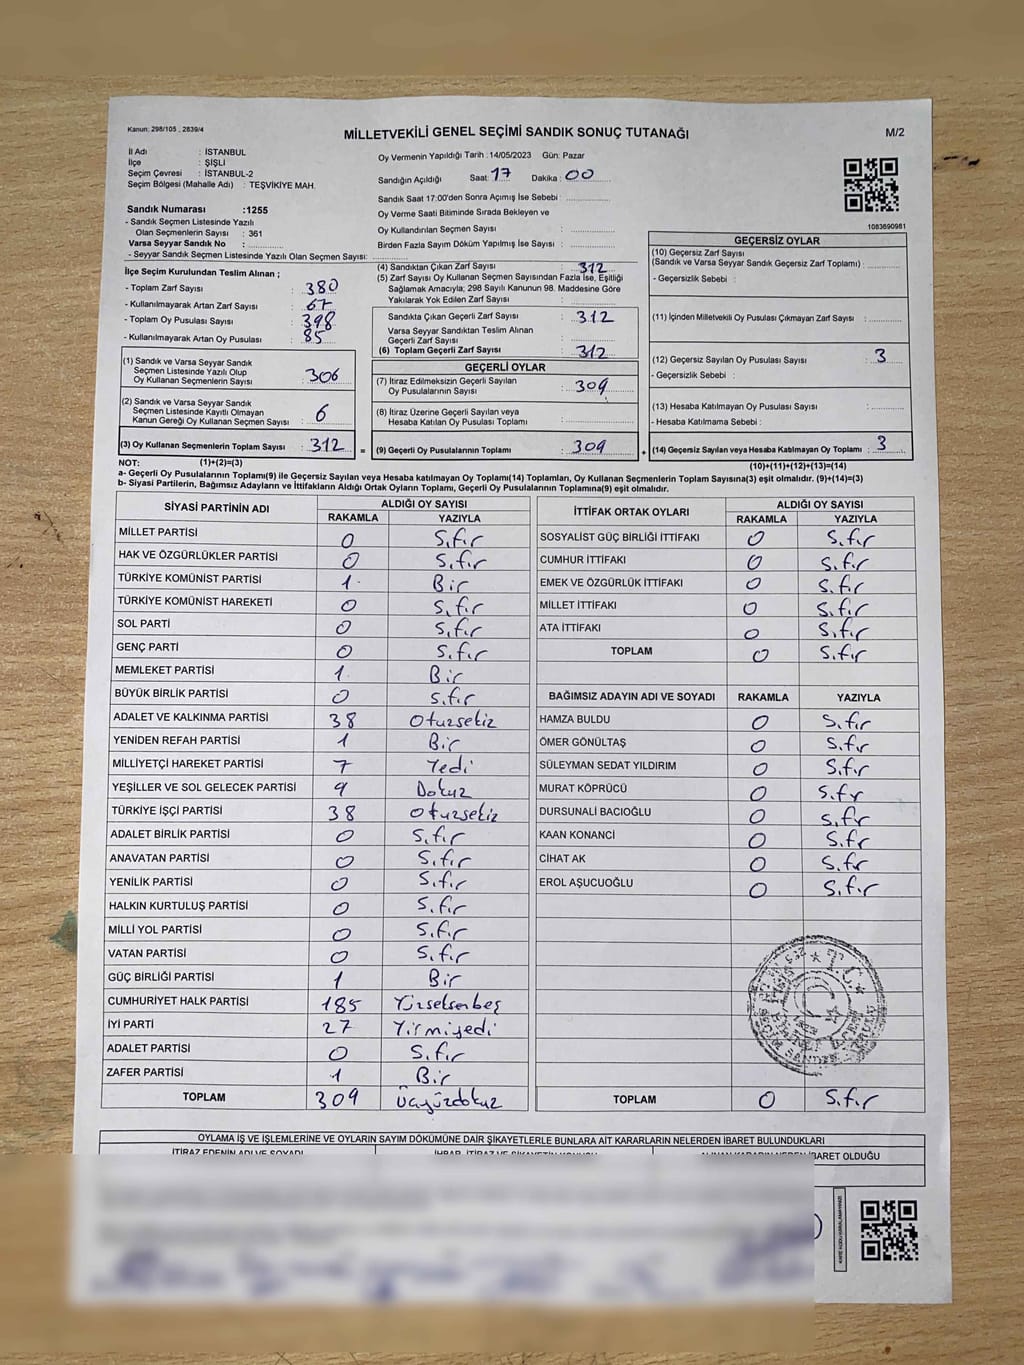 Kanun: 298/105 , 2839/4
MİLLETVEKİLİ GENEL SEÇİMİ SANDIK SONUÇ TUTANAĞI
M/2
İl Adı : İSTANBUL
İlçe : ŞİŞLİ
Seçim Çevresi : İSTANBUL-2
Seçim Bölgesi (Mahalle Adı) : TEŞVİKİYE MAH.
Sandık Numarası :1255
- Sandık Seçmen Listesinde Yazılı
Olan Seçmenlerin Sayısı : 361
Varsa Seyyar Sandık No :
- Seyyar Sandık Seçmen Listesinde Yazılı Olan Seçmen Sayısı:
Oy Vermenin Yapıldığı Tarih :14/05/2023 Gün: Pazar
Sandığın Açıldığı Saat: 17 Dakika : 00
Sandık Saat 17:00'den Sonra Açımış İse Sebebi :
Oy Verme Saati Bitiminde Sırada Bekleyen ve
Oy Kullandırılan Seçmen Sayısı :
Birden Fazla Sayım Döküm Yapılmış İse Sayısı :
1083690981
İlçe Seçim Kurulundan Teslim Alınan ;
- Toplam Zarf Sayısı : 380
- Kullanılmayarak Artan Zarf Sayısı : 67
- Toplam Oy Pusulası Sayısı : 398
- Kullanılmayarak Artan Oy Pusulası : 85
(1) Sandık ve Varsa Seyyar Sandık
Seçmen Listesinde Yazılı Olup
Oy Kullanan Seçmenlerin Sayısı : 306
(2) Sandık ve Varsa Seyyar Sandık
Seçmen Listesinde Kayıtlı Olmayan
Kanun Gereği Oy Kullanan Seçmen Sayısı : 6
(3) Oy Kullanan Seçmenlerin Toplam Sayısı : 312
(4) Sandıktan Çıkan Zarf Sayısı : 312
(5) Zarf Sayısı Oy Kullanan Seçmen Sayısından Fazla İse, Eşitliği
Sağlamak Amacıyla; 298 Sayılı Kanunun 98. Maddesine Göre
Yakılarak Yok Edilen Zarf Sayısı :
Sandıkta Çıkan Geçerli Zarf Sayısı : 312
Varsa Seyyar Sandıktan Teslim Alınan
Geçerli Zarf Sayısı :
(6) Toplam Geçerli Zarf Sayısı : 312
GEÇERLİ OYLAR
(7) İtiraz Edilmeksizin Geçerli Sayılan
Oy Pusulalarının Sayısı : 309
(8) İtiraz Üzerine Geçerli Sayılan veya
Hesaba Katılan Oy Pusulası Toplamı :
= (9) Geçerli Oy Pusulalarının Toplamı : 309
GEÇERSİZ OYLAR
(10) Geçersiz Zarf Sayısı
(Sandık ve Varsa Seyyar Sandık Geçersiz Zarf Toplamı) :
- Geçersizlik Sebebi :
(11) İçinden Milletvekili Oy Pusulası Çıkmayan Zarf Sayısı :
(12) Geçersiz Sayılan Oy Pusulası Sayısı : 3
- Geçersizlik Sebebi :
(13) Hesaba Katılmayan Oy Pusulası Sayısı :
- Hesaba Katılmama Sebebi :
+ (14) Geçersiz Sayılan veya Hesaba Katılmayan Oy Toplamı : 3
NOT: (1)+(2)=(3)
(10)+(11)+(12)+(13)=(14)
a- Geçerli Oy Pusulalarının Toplamı(9) ile Geçersiz Sayılan veya Hesaba katılmayan Oy Toplamı(14) Toplamları, Oy Kullanan Seçmenlerin Toplam Sayısına(3) eşit olmalıdır. (9)+(14)=(3)
b- Siyasi Partilerin, Bağımsız Adayların ve İttifakların Aldığı Ortak Oyların Toplamı, Geçerli Oy Pusulalarının Toplamına(9) eşit olmalıdır.
SİYASİ PARTİNİN ADI ALDIĞI OY SAYISI
RAKAMLA YAZIYLA
MİLLET PARTİSİ 0 Sıfır
HAK VE ÖZGÜRLÜKLER PARTİSİ 0 Sıfır
TÜRKİYE KOMÜNİST PARTİSİ 1 Bir
TÜRKİYE KOMÜNİST HAREKETİ 0 Sıfır
SOL PARTİ 0 Sıfır
GENÇ PARTİ 0 Sıfır
MEMLEKET PARTİSİ 1 Bir
BÜYÜK BİRLİK PARTİSİ 0 Sıfır
ADALET VE KALKINMA PARTİSİ 38 Otuzsekiz
YENİDEN REFAH PARTİSİ 1 Bir
MİLLİYETÇİ HAREKET PARTİSİ 7 Yedi
YEŞİLLER VE SOL GELECEK PARTİSİ 9 Dokuz
TÜRKİYE İŞÇİ PARTİSİ 38 Otuzsekiz
ADALET BİRLİK PARTİSİ 0 Sıfır
ANAVATAN PARTİSİ 0 Sıfır
YENİLİK PARTİSİ 0 Sıfır
HALKIN KURTULUŞ PARTİSİ 0 Sıfır
MİLLİ YOL PARTİSİ 0 Sıfır
VATAN PARTİSİ 0 Sıfır
GÜÇ BİRLİĞİ PARTİSİ 1 Bir
CUMHURİYET HALK PARTİSİ 185 Yüzseksenbeş
İYİ PARTİ 27 Yirmiyedi
ADALET PARTİSİ 0 Sıfır
ZAFER PARTİSİ 1 Bir
TOPLAM 309 Üçyüzdokuz
İTTİFAK ORTAK OYLARI ALDIĞI OY SAYISI
RAKAMLA YAZIYLA
SOSYALİST GÜÇ BİRLİĞİ İTTİFAKI 0 Sıfır
CUMHUR İTTİFAKI 0 Sıfır
EMEK VE ÖZGÜRLÜK İTTİFAKI 0 Sıfır
MİLLET İTTİFAKI 0 Sıfır
ATA İTTİFAKI 0 Sıfır
TOPLAM 0 Sıfır
BAĞIMSIZ ADAYIN ADI VE SOYADI RAKAMLA YAZIYLA
HAMZA BULDU 0 Sıfır
ÖMER GÖNÜLTAŞ 0 Sıfır
SÜLEYMAN SEDAT YILDIRIM 0 Sıfır
MURAT KÖPRÜCÜ 0 Sıfır
DURSUNALİ BACIOĞLU 0 Sıfır
KAAN KONANCİ 0 Sıfır
CİHAT AK 0 Sıfır
EROL AŞUCUOĞLU 0 Sıfır
T.C.
TOPLAM 0 Sıfır
OYLAMA İŞ VE İŞLEMLERİNE VE OYLARIN SAYIM DÖKÜMÜNE DAİR ŞİKAYETLERLE BUNLARA AİT KARARLARIN NELERDEN İBARET BULUNDUKLARI
İTİRAZ EDENİN ADI VE SOYADI
İHBAR, İTİRAZ VE ŞİKAYETİN KONUSU
ALINAN KARARIN NEDEN İBARET OLDUĞU